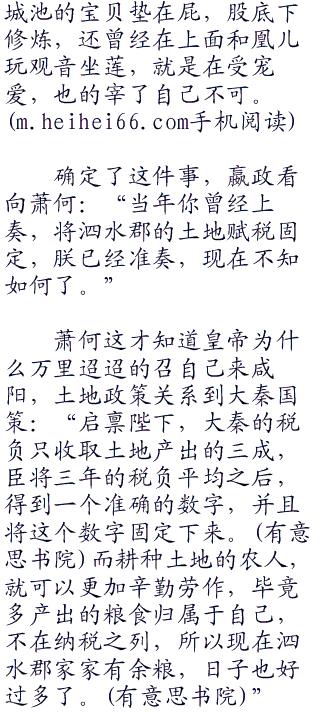 城池的宝贝垫在屁，股底下
修炼，还曾经在上面和凰儿
玩观音坐莲，就是在受宠
爱，也的宰了自己不可。
(m.heihei66.com手机阅读)
确定了这件事，嬴政看
向萧何：“当年你曾经上
奏，将泗水郡的土地赋税固
定，朕已经准奏，现在不知
如何了。”
萧何这才知道皇帝为什
么万里迢迢的召自己来咸
阳，土地政策关系到大秦国
策：“启禀陛下，大秦的税
负只收取土地产出的三成，
臣将三年的税负平均之后，
得到一个准确的数字，并且
将这个数字固定下来。(有意
思书院)而耕种土地的农人，
就可以更加辛勤劳作，毕竟
多产出的粮食归属于自己，
不在纳税之列，所以现在泗
水郡家家有余粮，日子也好
过多了。(有意思书院)”